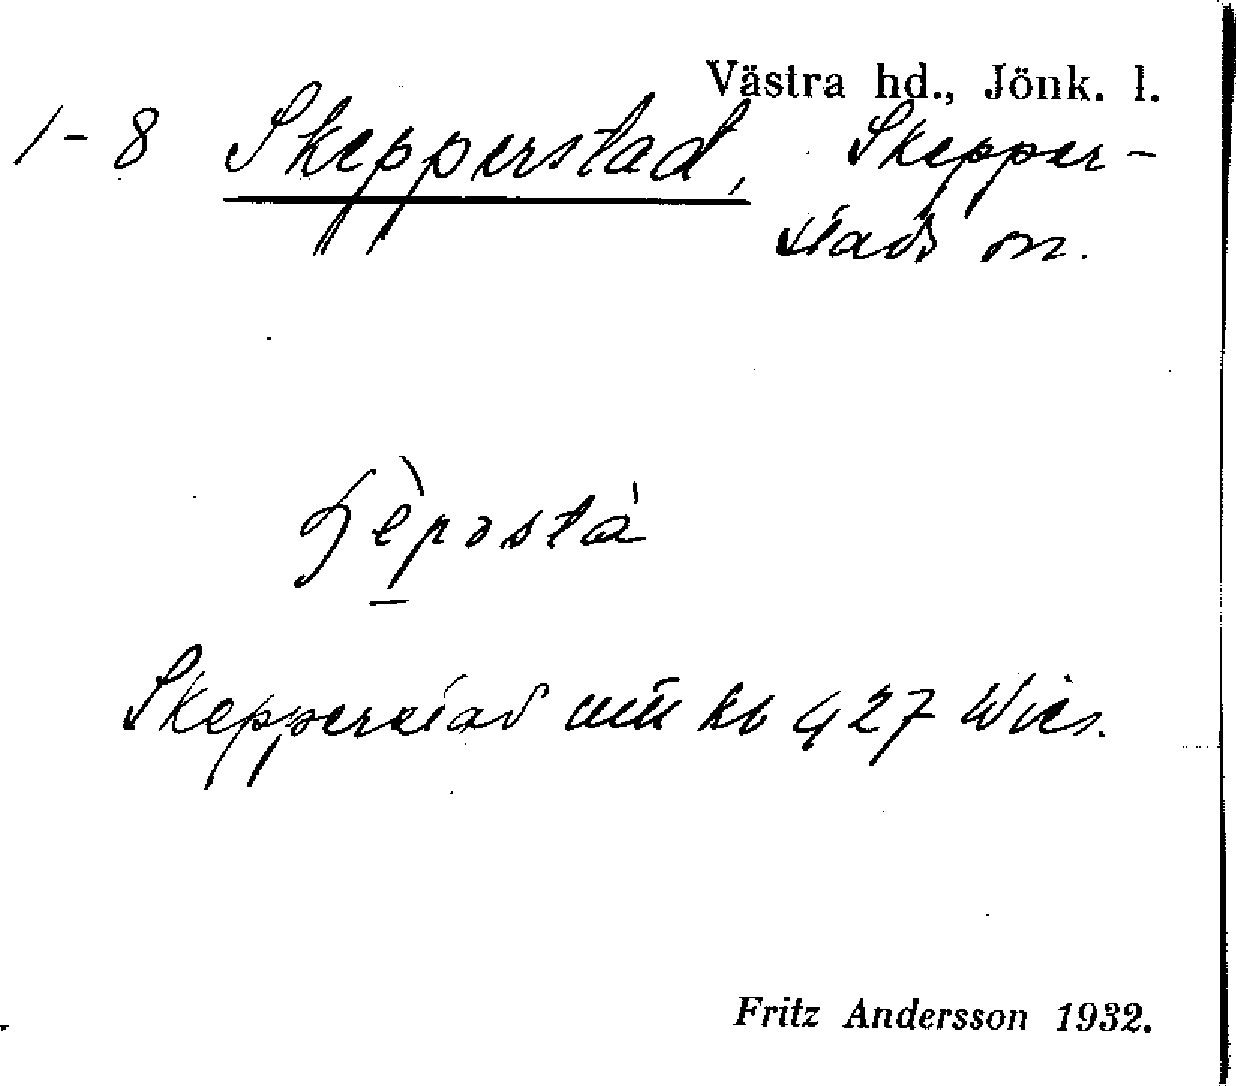 Västra hd., Jönk. l.
1-8 Skepperstad, Skepper-
stads sn.
Skepperstad kb 427 Wies.
Fritz Andersson 1932.